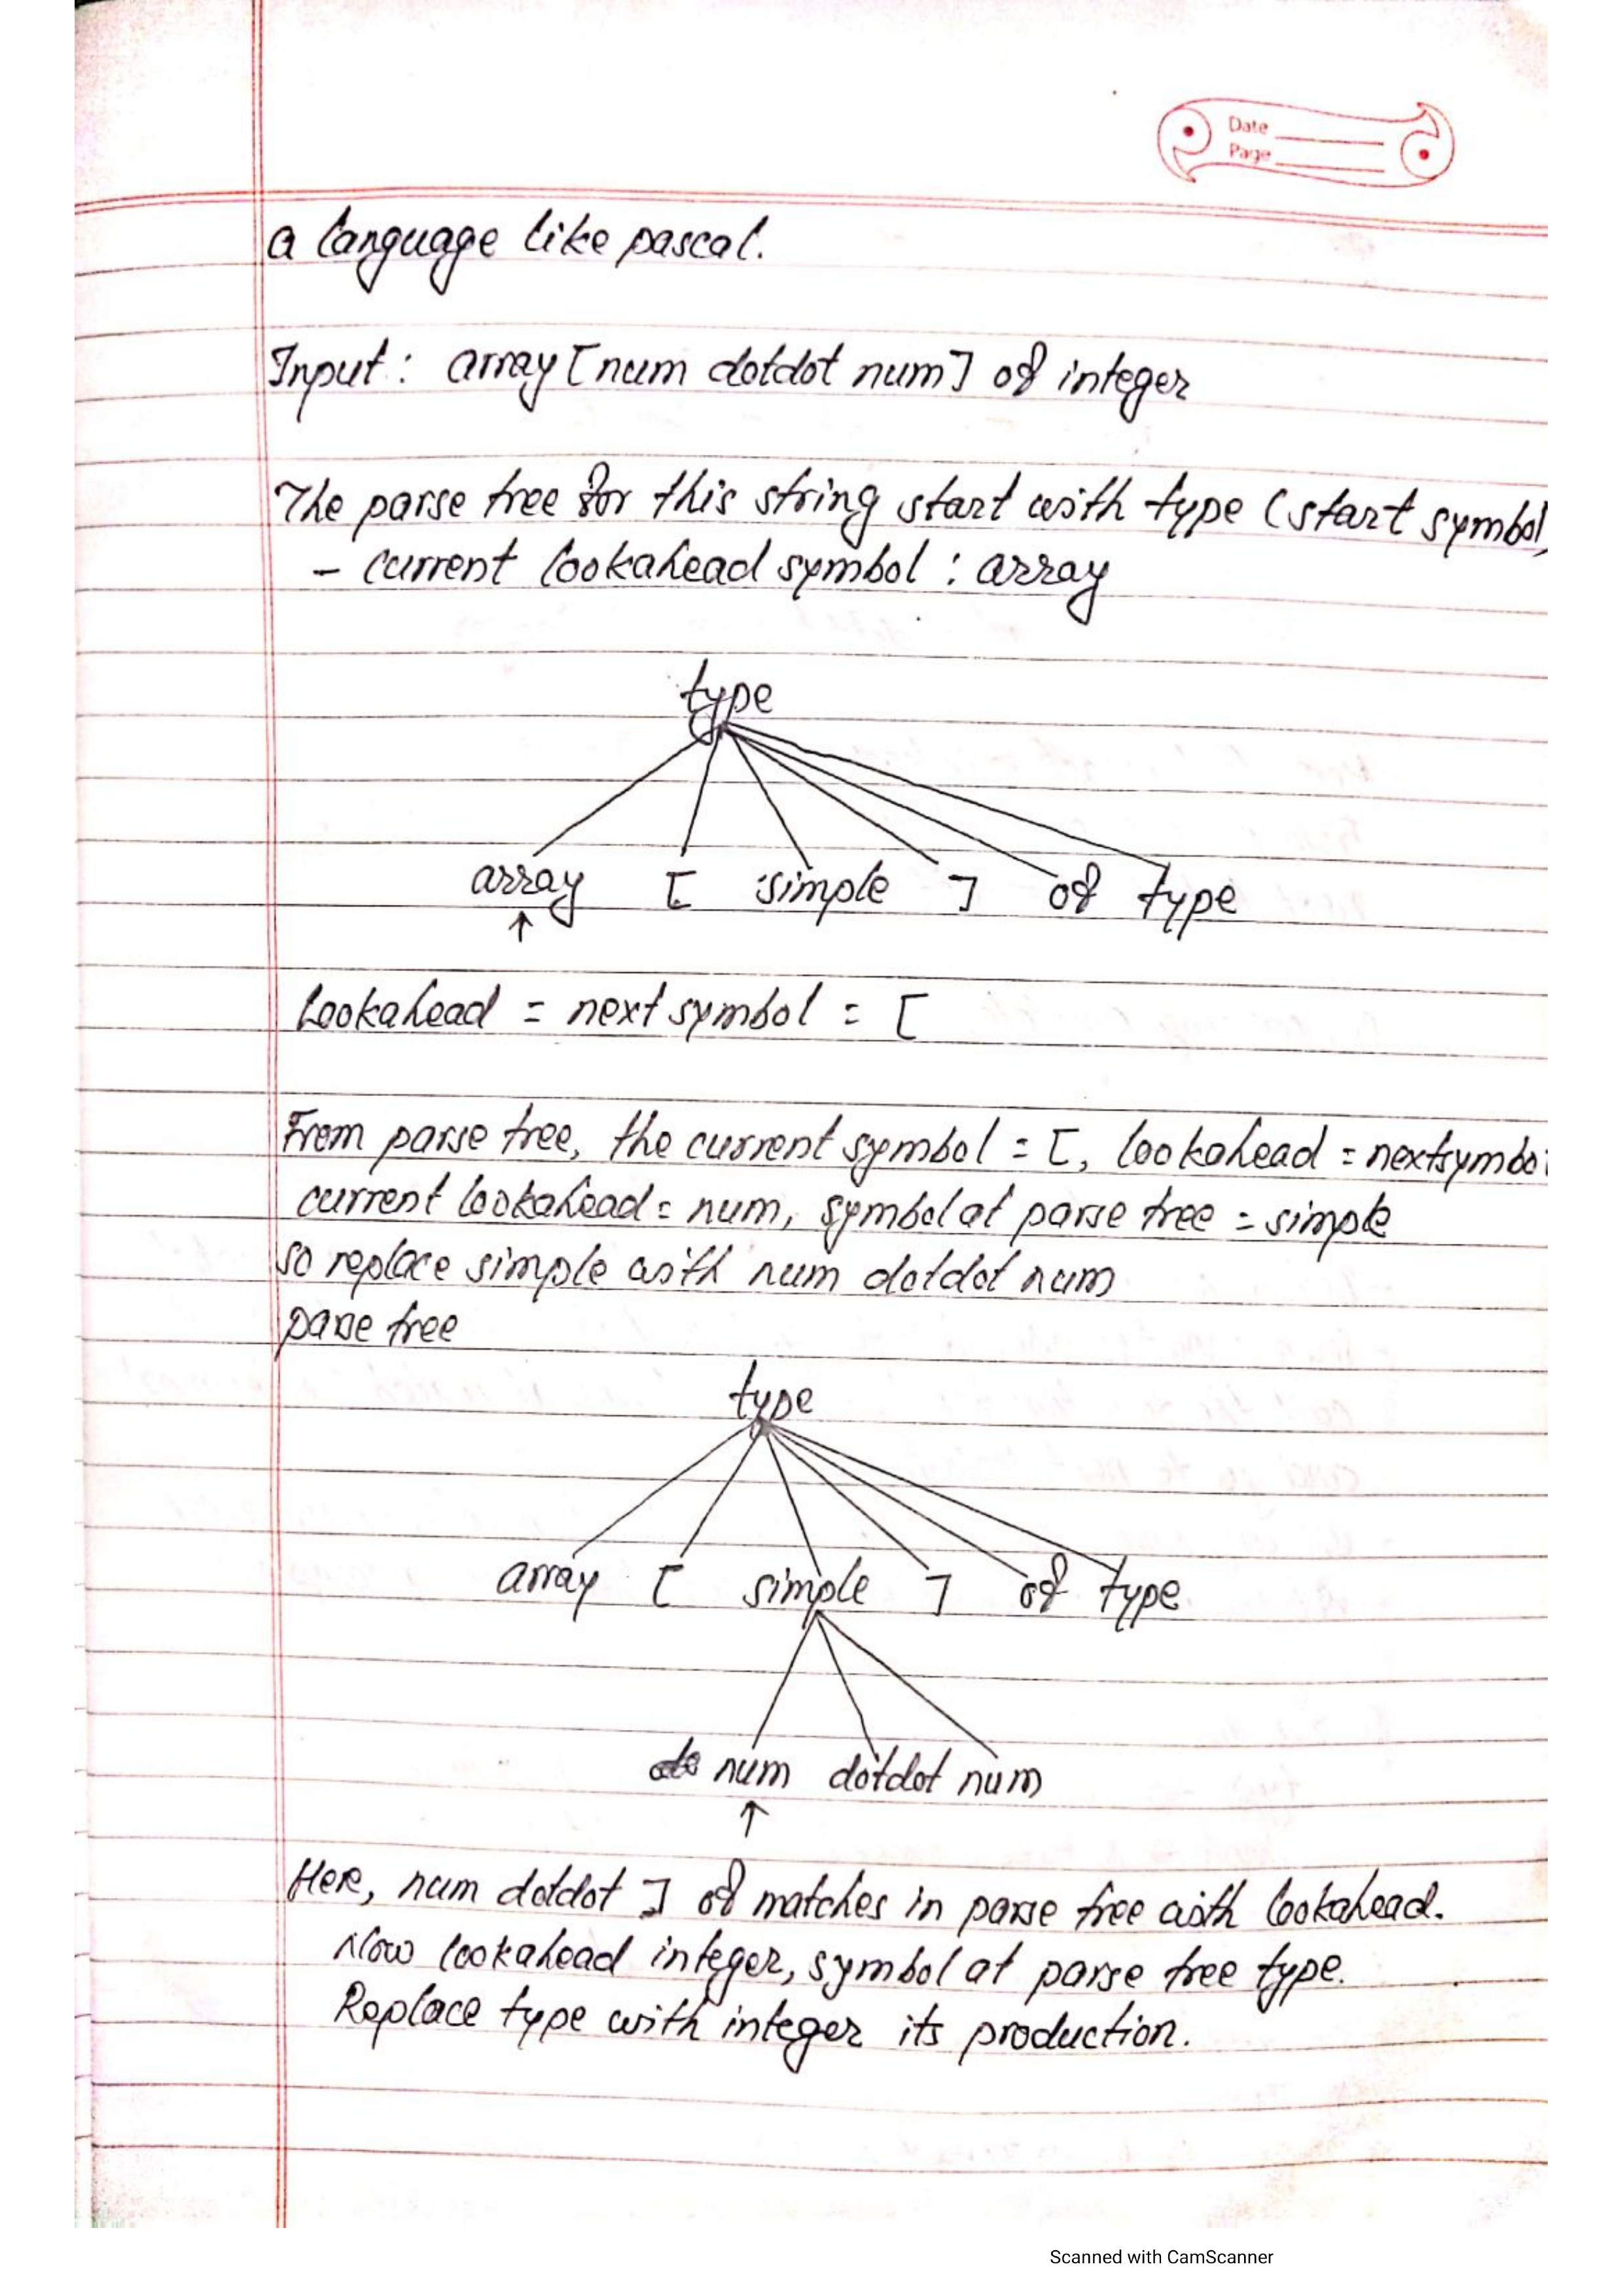 Date
Page
a language like pascal.
Input: array [num dotdot num] of integer
The parse tree for this string start with type (start symbol)
- current lookahead symbol : array
type
array [ simple ] of type
↑
Lookahead = next symbol = [
From parse tree, the current symbol = [, lookahead = nextsymbol
current lookahead = num, symbol at parse tree = simple
so replace simple with num dotdot num
parse tree
type
array [ simple ] of type
num dotdot num
↑
Here, num dotdot ] of matches in parse tree with lookahead.
Now lookahead integer, symbol at parse tree type.
Replace type with integer its production.
Scanned with CamScanner